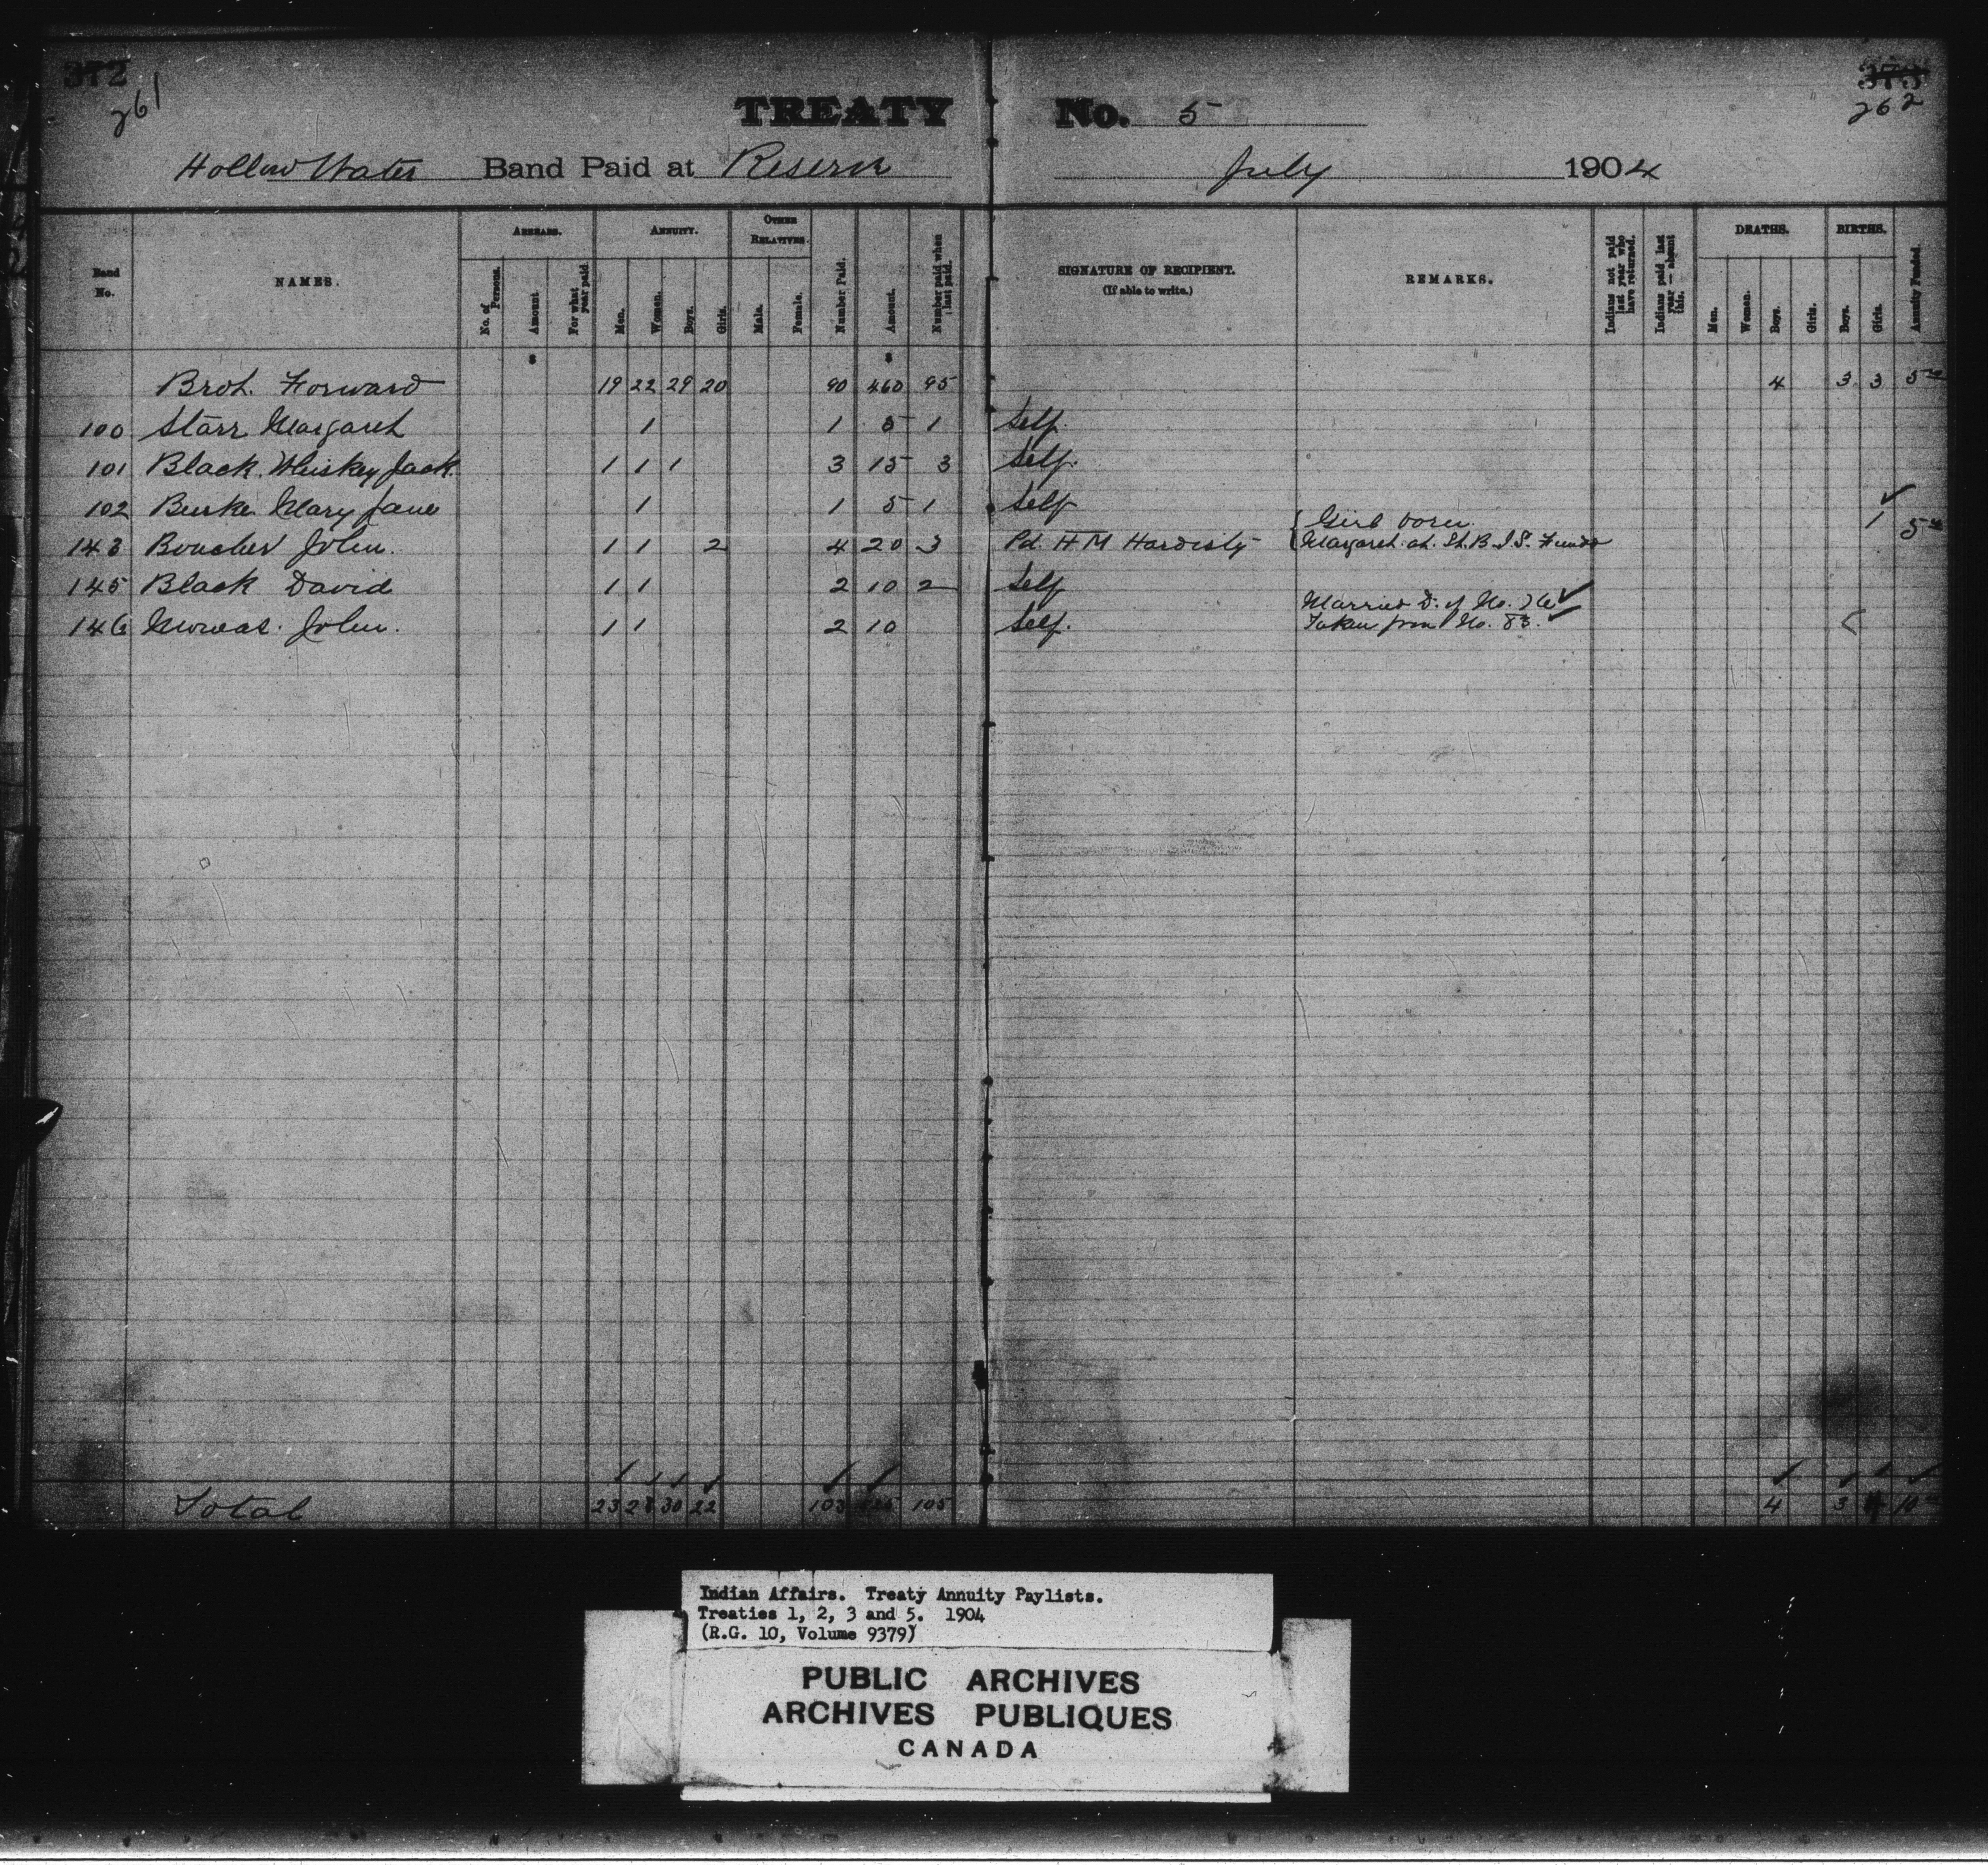 372 373
261 262
TREATY No. 5
Hollow Water Band Paid at Reserve July 1904
Band No. NAMES. ARREARS. No. of Persons. Amount For what year paid. ANNUITY. Men. Women. Boys. Girls. OTHER RELATIVES. Male. Female. Number Paid. Amount. Number paid when last paid. SIGNATURE OF RECIPIENT. (If able to write.) REMARKS. Indians not paid last year who have returned. Indians paid last year — absent this. DEATHS. Men. Women. Boys. Girls. BIRTHS. Boys. Girls. Annuity Funded.
$ $
Brot. Forward 19 22 29 20 90 460 95 4 3 3 5
100 Starr Margaret 1 1 5 1 Self.
101 Black Whiskey Jack 1 1 1 3 15 3 Self.
102 Burke Mary Jane 1 1 5 1 Self
143 Boucher John. 1 1 2 4 20 3 Pd. H M Hardisty { Girl born. Margaret at St. B. I. S. Funds 1 5
145 Black David 1 1 2 10 2 Self
146 John. 1 1 2 10 Self. Married D. of No. Taken from No. 83.
Total 23 28 30 22 103 105 4 3 4 10
Indian Affairs. Treaty Annuity Paylists.
Treaties 1, 2, 3 and 5. 1904
(R.G. 10, Volume 9379)
PUBLIC ARCHIVES
ARCHIVES PUBLIQUES
CANADA